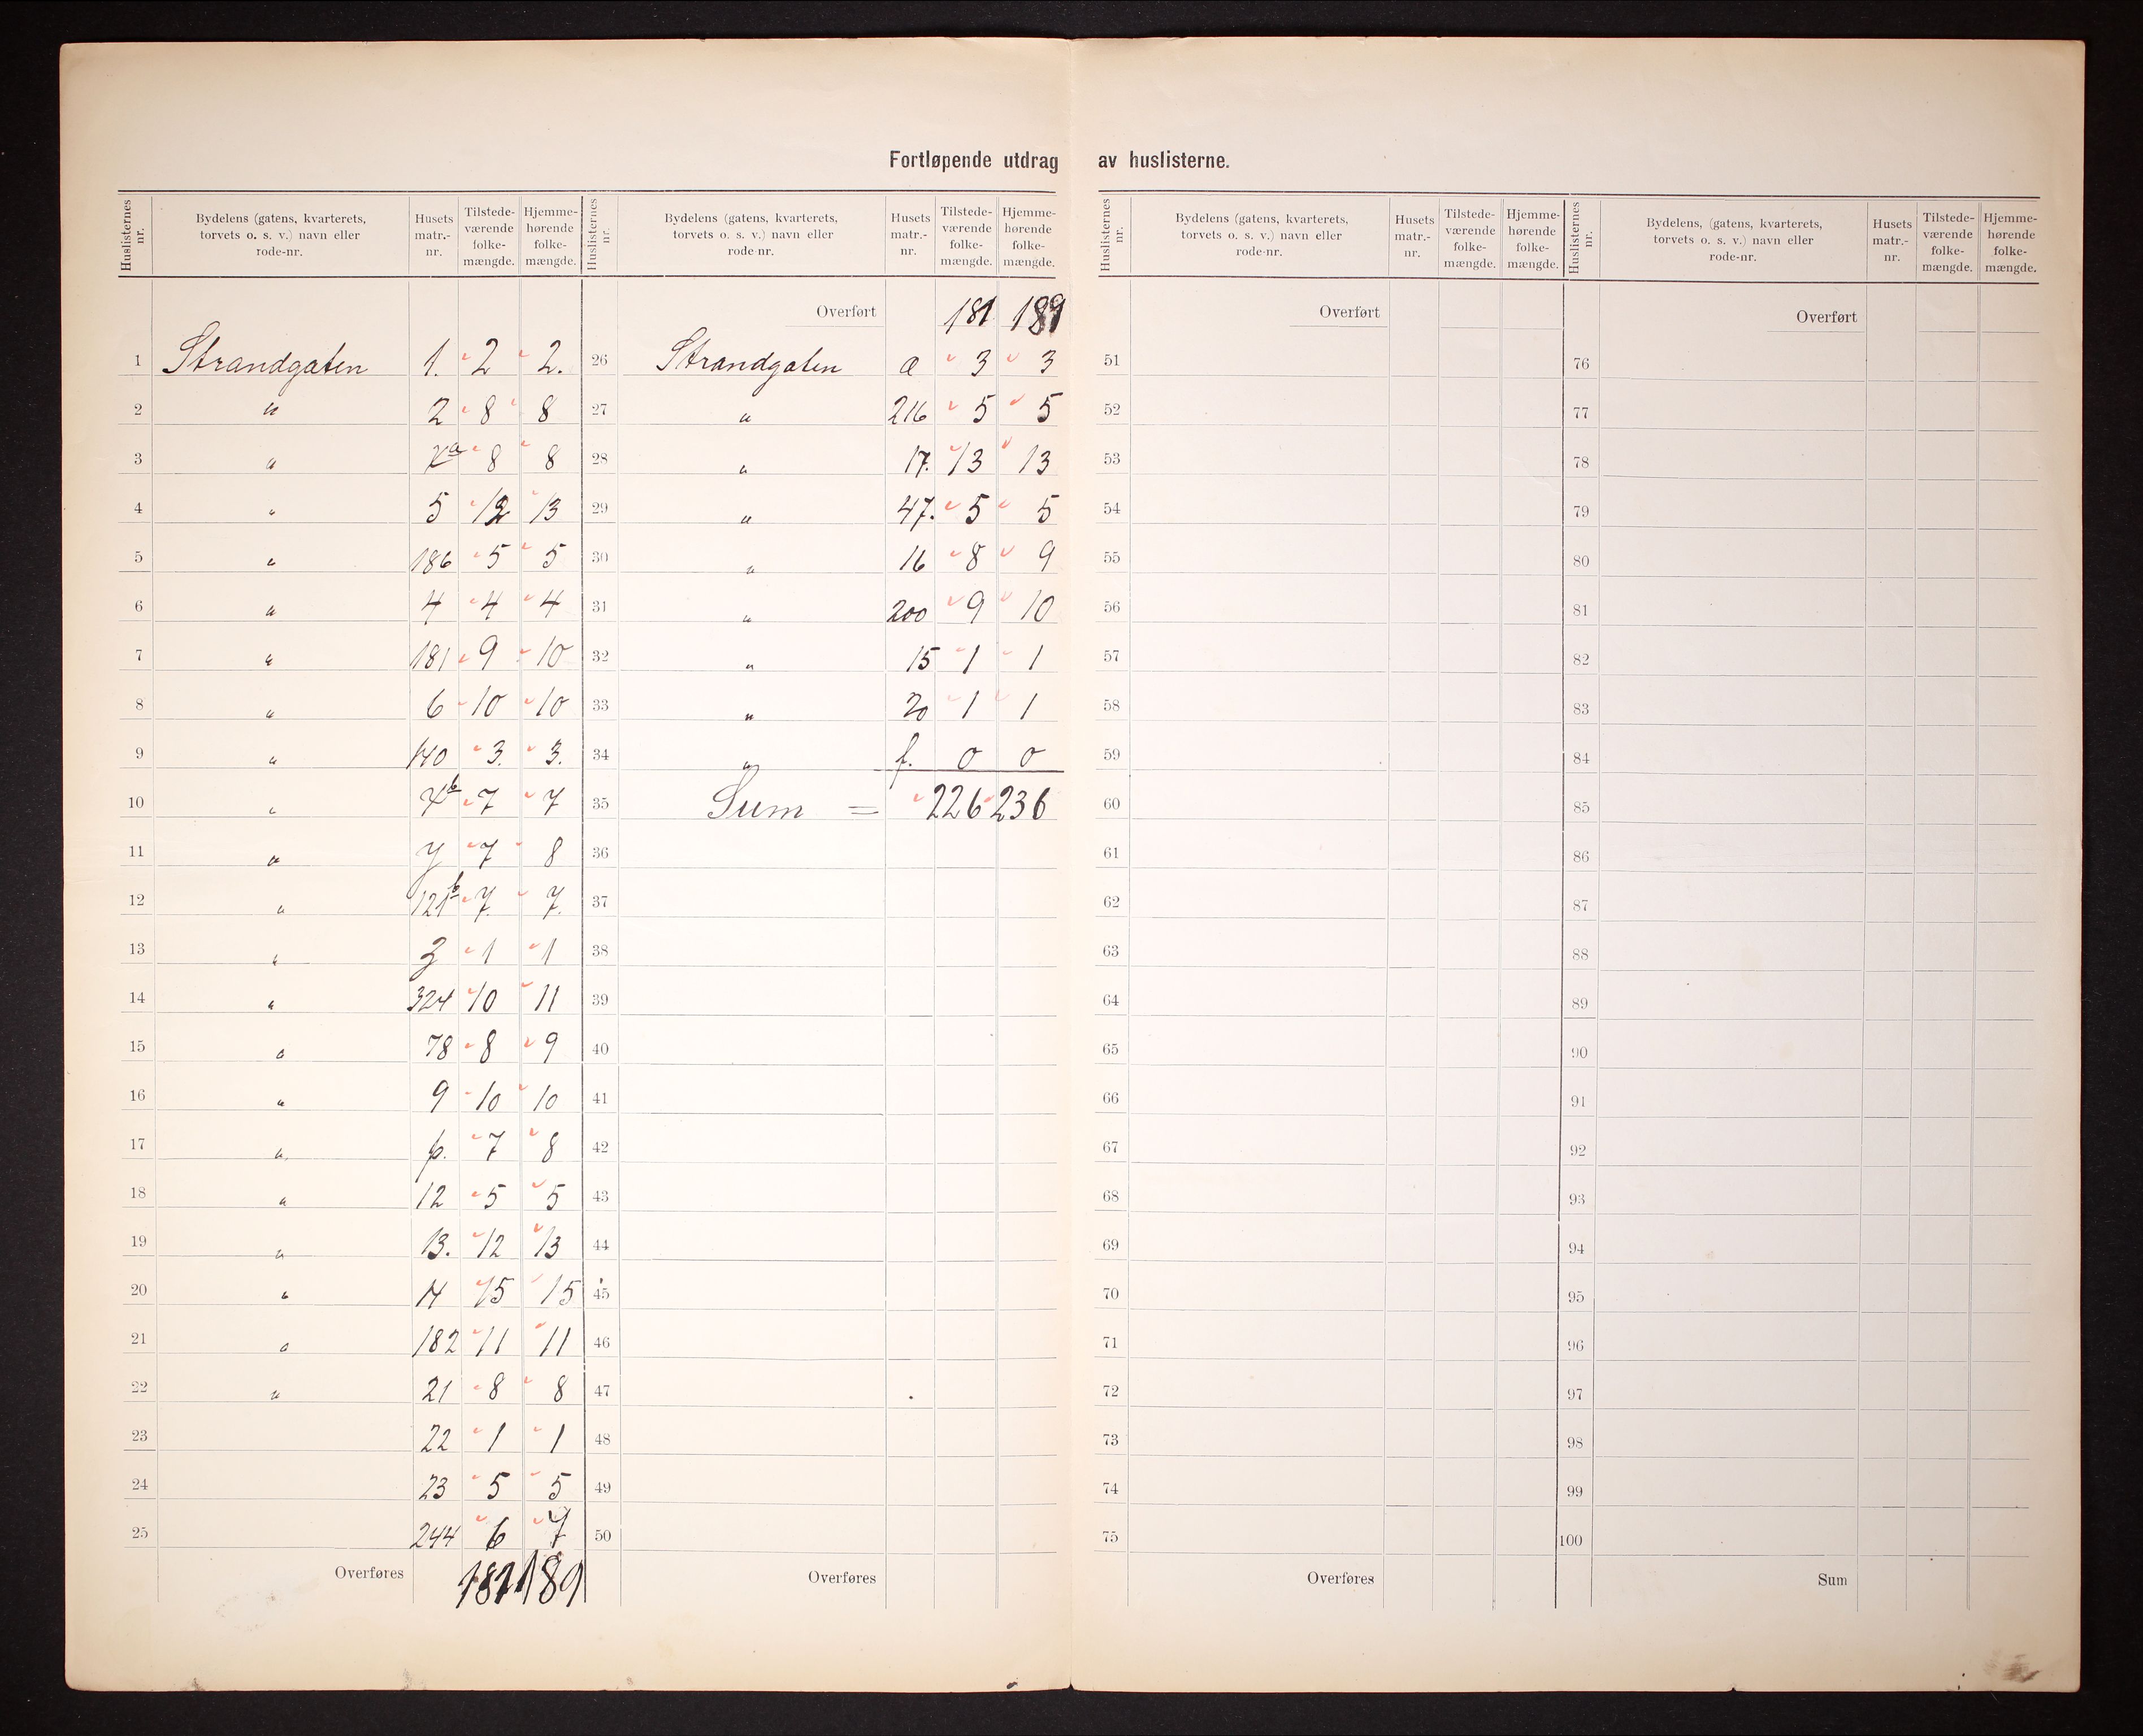 Fortløpende utdrag av huslisterne.
Huslisternes nr. Bydelens (gatens, kvarterets, torvets o. s. v.) navn eller rode-nr. Husets matr.-nr. Tilstede-værende folke-mængde. Hjemme-hørende folke-mængde.
1 Strandgaten 1. 2 2.
2 " 2 8 8
3 " 8 8
4 " 5 12 13
5 " 186 5 5
6 " 4 4 4
7 " 181 9 10
8 " 6 10 10
9 " 140 3. 3.
10 " 7 7
11 " y 7 8
12 " 121b 7. 7.
13 " 3 1 1
14 " 324 10 11
15 " 78 8 9
16 " 9 10 10
17 " 7 8
18 " 12 5 5
19 " 13. 12 13
20 " 14 15 15
21 " 182 11 11
22 " 21 8 8
23 22 1 1
24 23 5 5
25 244 6 7
Overføres 181 189
Huslisternes nr. Bydelens (gatens, kvarterets, torvets o. s. v.) navn eller rode nr. Husets matr.-nr. Tilstede-værende folke-mængde. Hjemme-hørende folke-mængde.
Overført 181 189
26 Strandgaten a 3 3
27 " 216 5 5
28 " 17. 13 13
29 " 47. 5 5
30 " 16 8 9
31 " 200 9 10
32 " 15 1 1
33 " 20 1 1
34 " f. 0 0
35 Sum = 226 236
36
37
38
39
40
41
42
43
44
45
46
47
48
49
50
Overføres
Huslisternes nr. Bydelens (gatens, kvarterets, torvets o. s. v.) navn eller rode-nr. Husets matr.-nr. Tilstede-værende folke-mængde. Hjemme-hørende folke-mængde.
Overført
51
52
53
54
55
56
57
58
59
60
61
62
63
64
65
66
67
68
69
70
71
72
73
74
75
Overføres
Huslisternes nr. Bydelens, (gatens, kvarterets, torvets o. s. v.) navn eller rode-nr. Husets matr.-nr. Tilstede-værende folke-mængde. Hjemme-hørende folke-mængde.
Overført
76
77
78
79
80
81
82
83
84
85
86
87
88
89
90
91
92
93
94
95
96
97
98
99
100
Sum